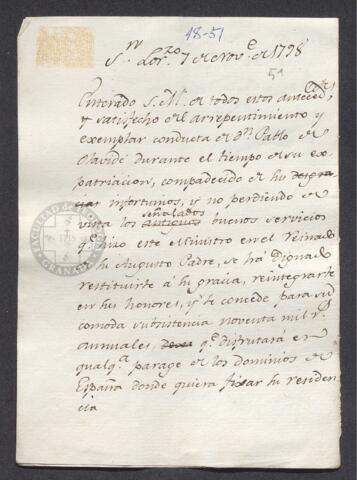 18-51
Sn. Lorzo. 7 de Nove. de 1798
51
Enterado S.M. de todos estos antecedtes
y satisfecho del arrepentimiento y
exemplar conducta de Dn. Pablo de
Olavide durante el tiempo de su ex
patriacion, compadecido de sus desgra
cias infortunios, y no perdiendo de
señalados
vista los antiguos buenos servicios
qe. hizo este Ministro en el Reinado
de su Augusto Padre, se ha dignado
restituirle á su gracia, reintegrarle
en sus honores, y le concede para su
comoda subsistencia noventa mil rs.
annuales, qe. disfrutará en
qualqa. parage de los Dominios de
España donde quiera fixar su residen
cia
FACULTAD
GRANADA